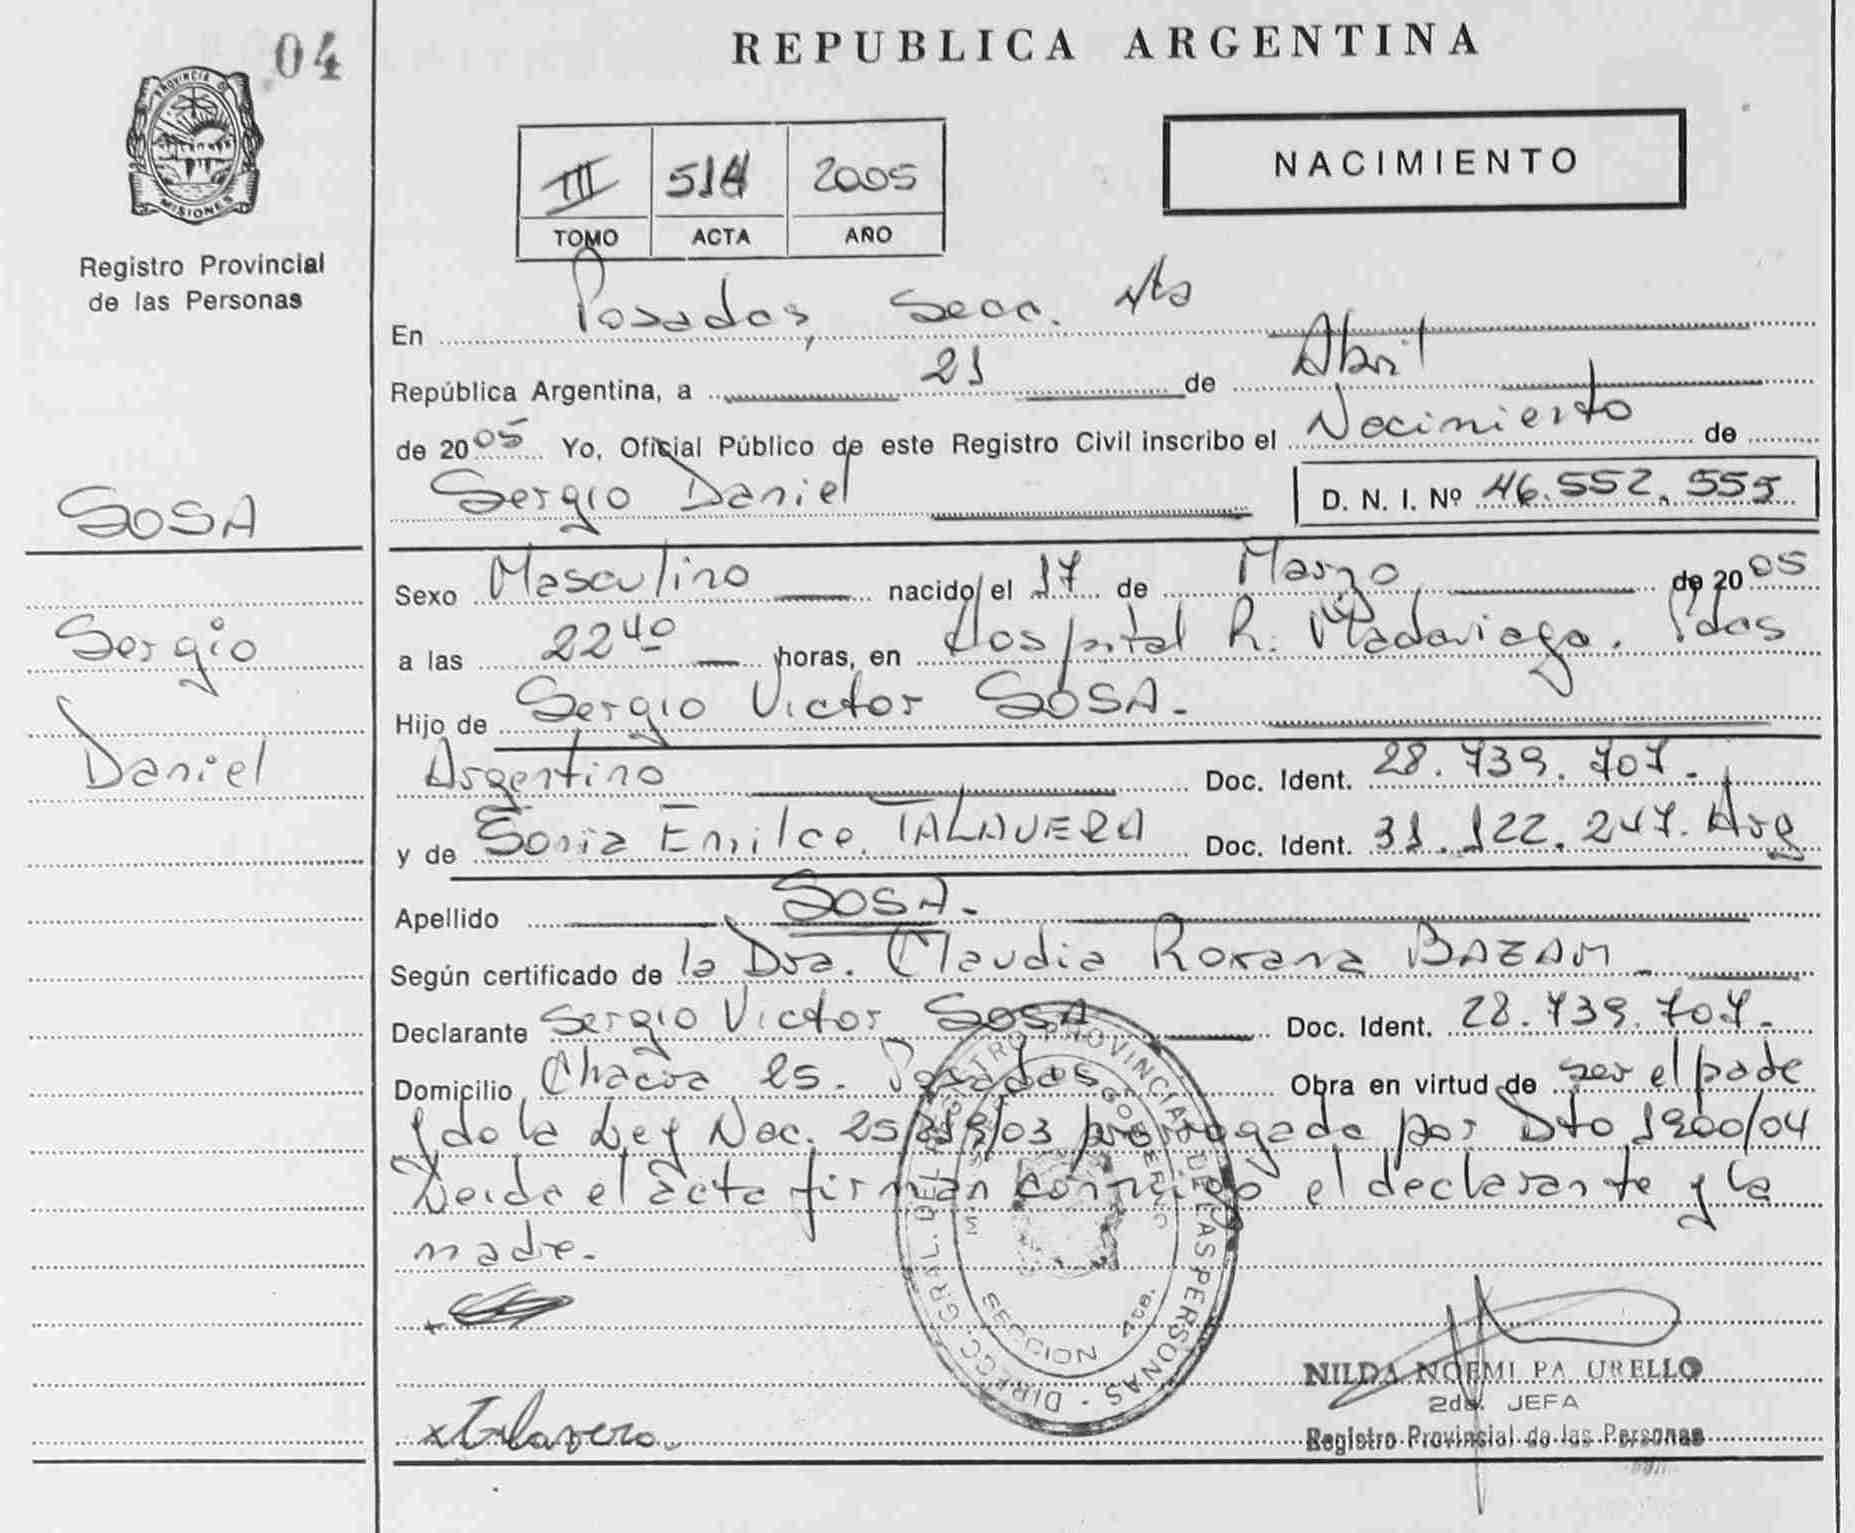 04
REPUBLICA ARGENTINA
PROVINCIA DE
MISIONES
Registro Provincial
de las Personas
III 514 2005
TOMO ACTA AÑO
NACIMIENTO
En Posadas, Secc. 4ta
República Argentina, a 21 de Abril
de 2005 Yo, Oficial Público de este Registro Civil inscribo el Nacimiento de
Sergio Daniel D. N. I. Nº 46.552.555
SOSA
Sergio
Daniel
Sexo Masculino nacido el 17 de Marzo de 2005
a las 22 40 horas, en Hospital R. Madariaga. Pdas
Hijo de Sergio Victor SOSA.
Argentino Doc. Ident. 28.739.707.
y de Sonia Emilce TALAVERA Doc. Ident. 31.122.247. Arg
Apellido SOSA.
Según certificado de la Dra. Claudia Roxana BAZAM
Declarante Sergio Victor SOSA Doc. Ident. 28.739.707.
Domicilio Chacra 25. Posadas Obra en virtud de ser el padre
y de la Ley Nac. prorrogada por Dto 1200/04
Leida el acta firman conmigo el declarante y la
madre.
DIRECC. GRAL. DEL REGISTRO PROVINCIAL DE LAS PERSONAS
SECCION 4ta.
x Talavera.
NILDA NOEMI PA URELLO
2da. JEFA
Registro Provincial de las Personas